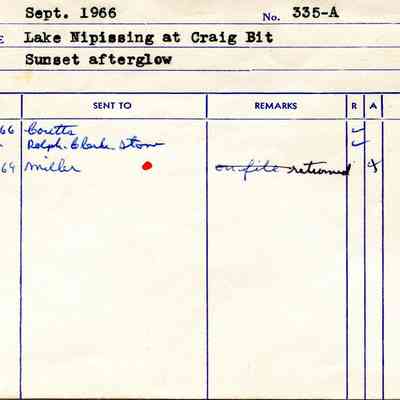 Sept. 1966 No. 335-A
E Lake Nipissing at Craig Bit
Sunset afterglow
SENT TO REMARKS R A
66 Coutts ✓
Ralph Clark Stone ✓
69 Miller on file returned x